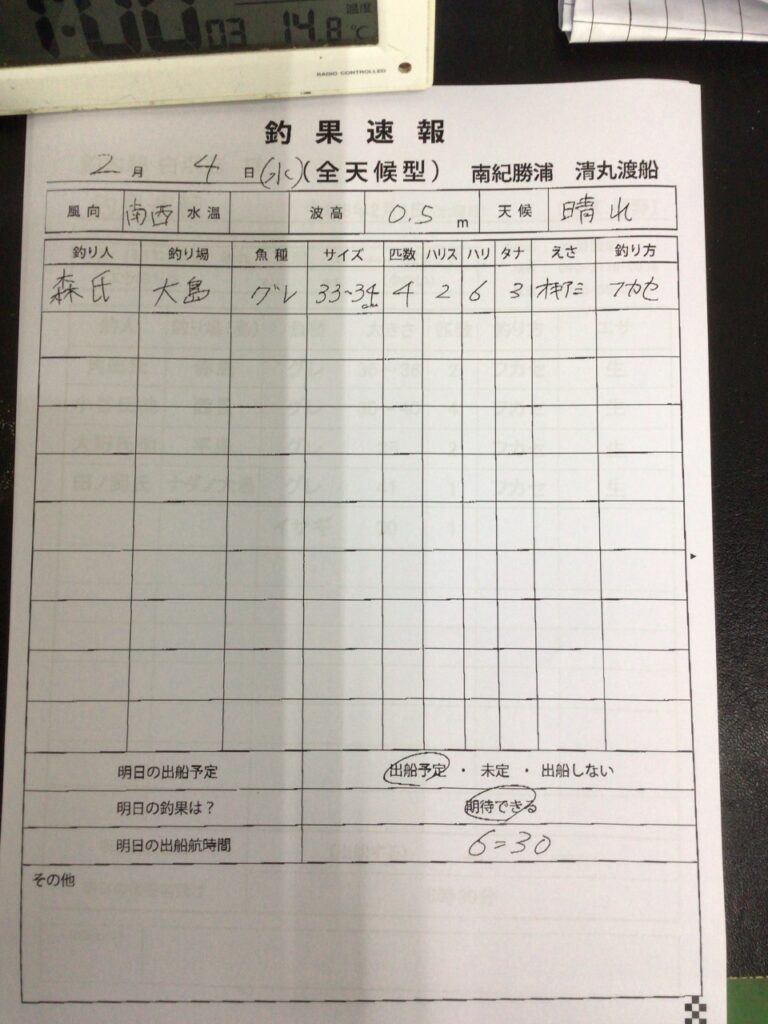 1:00 03 温度 14.8℃
RADIO CONTROLLED
釣果速報
2月 4日(水)(全天候型) 南紀勝浦 清丸渡船
風向 南西 水温 波高 0.5m 天候 晴れ
釣り人 釣り場 魚種 サイズ 匹数 ハリス ハリ タナ えさ 釣り方
森氏 大島 グレ 33~34cm 4 2 6 3 オキアミ フカセ
明日の出船予定 出船予定 ・ 未定 ・ 出船しない
明日の釣果は? 期待できる
明日の出船航時間 6=30
その他